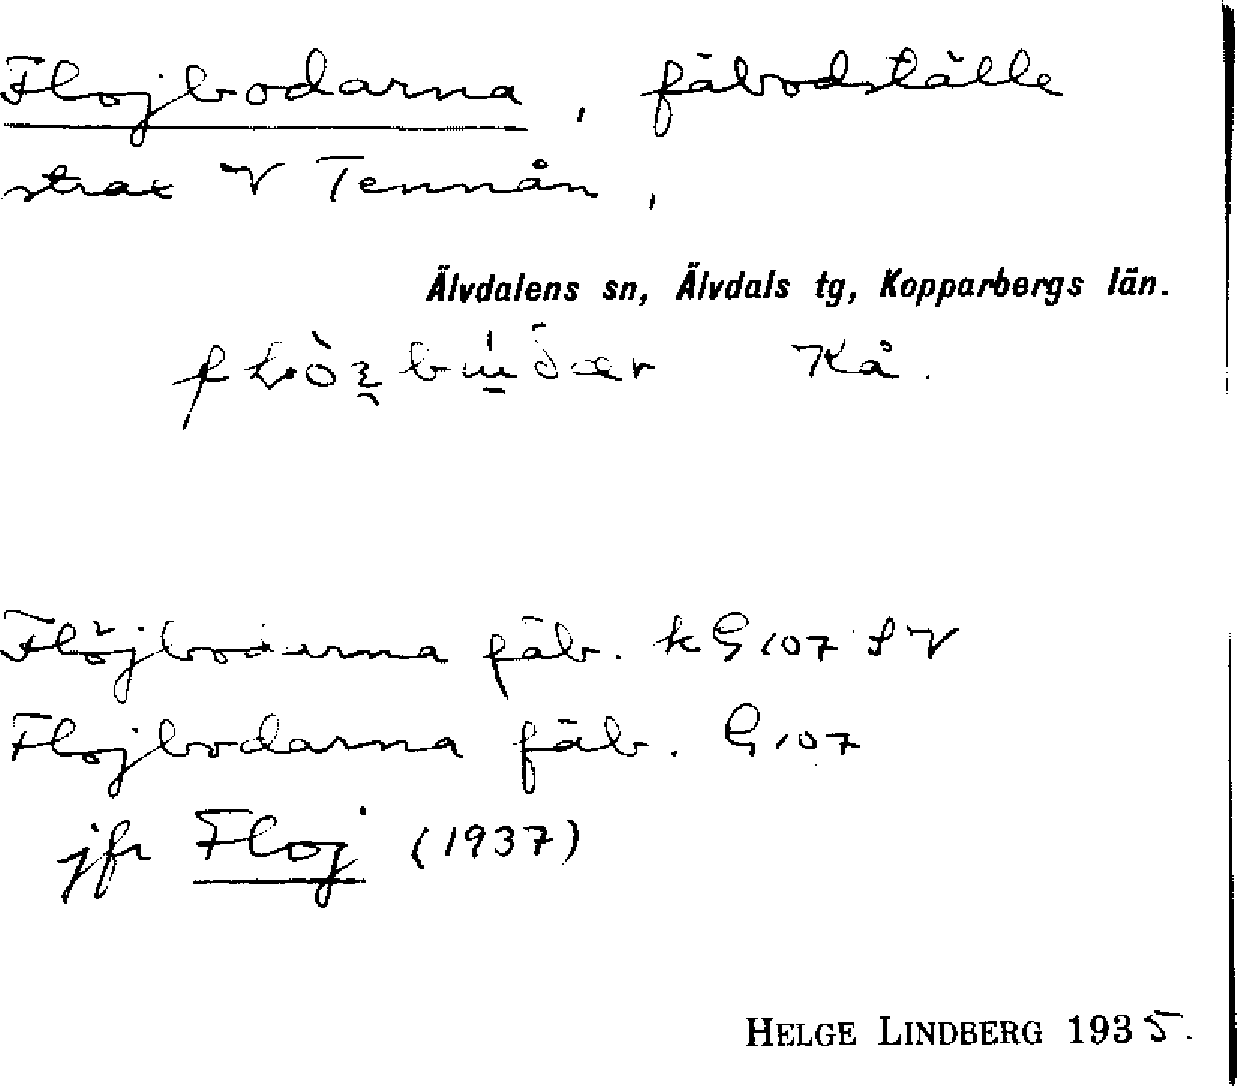 Flojbodarna, fäbodställe
strax V Tennån,
Älvdalens sn, Älvdals tg, Kopparbergs län.
Kå.
Flöjbodarna fäb. kG107 SV
Flojbodarna fäb. G107
jfr Floj (1937)
HELGE LINDBERG 1935.